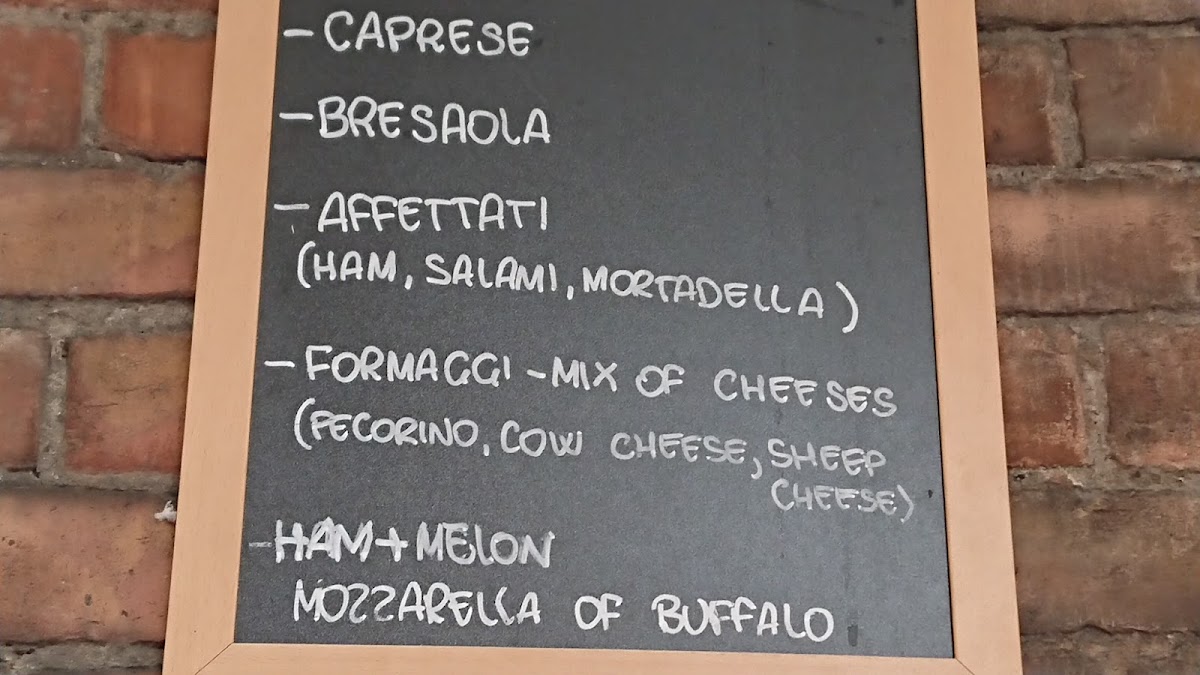 - CAPRESE
- BRESAOLA
- AFFETTATI
(HAM, SALAMI, MORTADELLA)
- FORMAGGI - MIX OF CHEESES
(PECORINO, COW CHEESE, SHEEP
CHEESE)
- HAM + MELON
MOZZARELLA OF BUFFALO